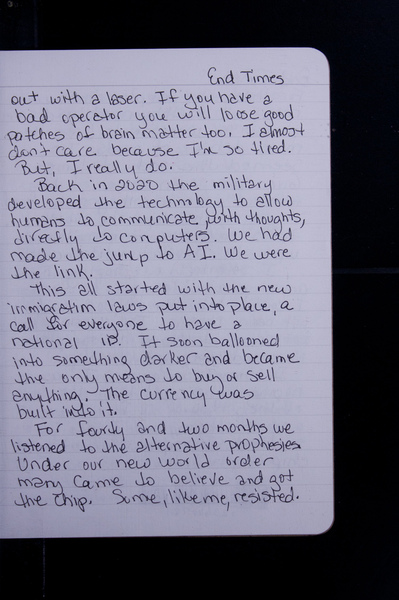 End Times
out with a laser. If you have a
bad operator you will loose good
patches of brain matter too. I almost
don't care because I'm so tired.
But, I really do.
Back in 2020 the military
developed the technology to allow
humans to communicate with thoughts,
directly to computers. We had
made the jump to AI. We were
the link.
This all started with the new
immigration laws put into place, a
call for everyone to have a
national ID. It soon ballooned
into something darker and became
the only means to buy or sell
anything. The currency was
built into it.
For fourty and two months we
listened to the alternative prophesies.
Under our new world order
many came to believe and got
the chip. Some, like me, resisted.